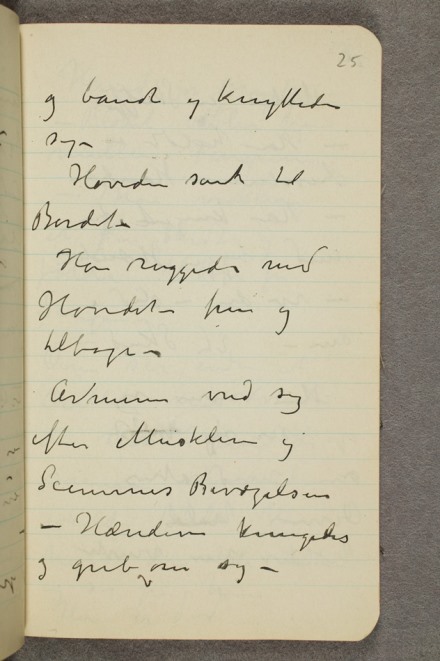 25
og bandt og knyttede
sig –
Hovedet sank til
Bordet
Han ruggede med
Hovedet – frem og
tilbage –
Armene vred sig
efter Musklernes og
Senernes Bevægelser
– Hænderne knugedes
og greb om sig –